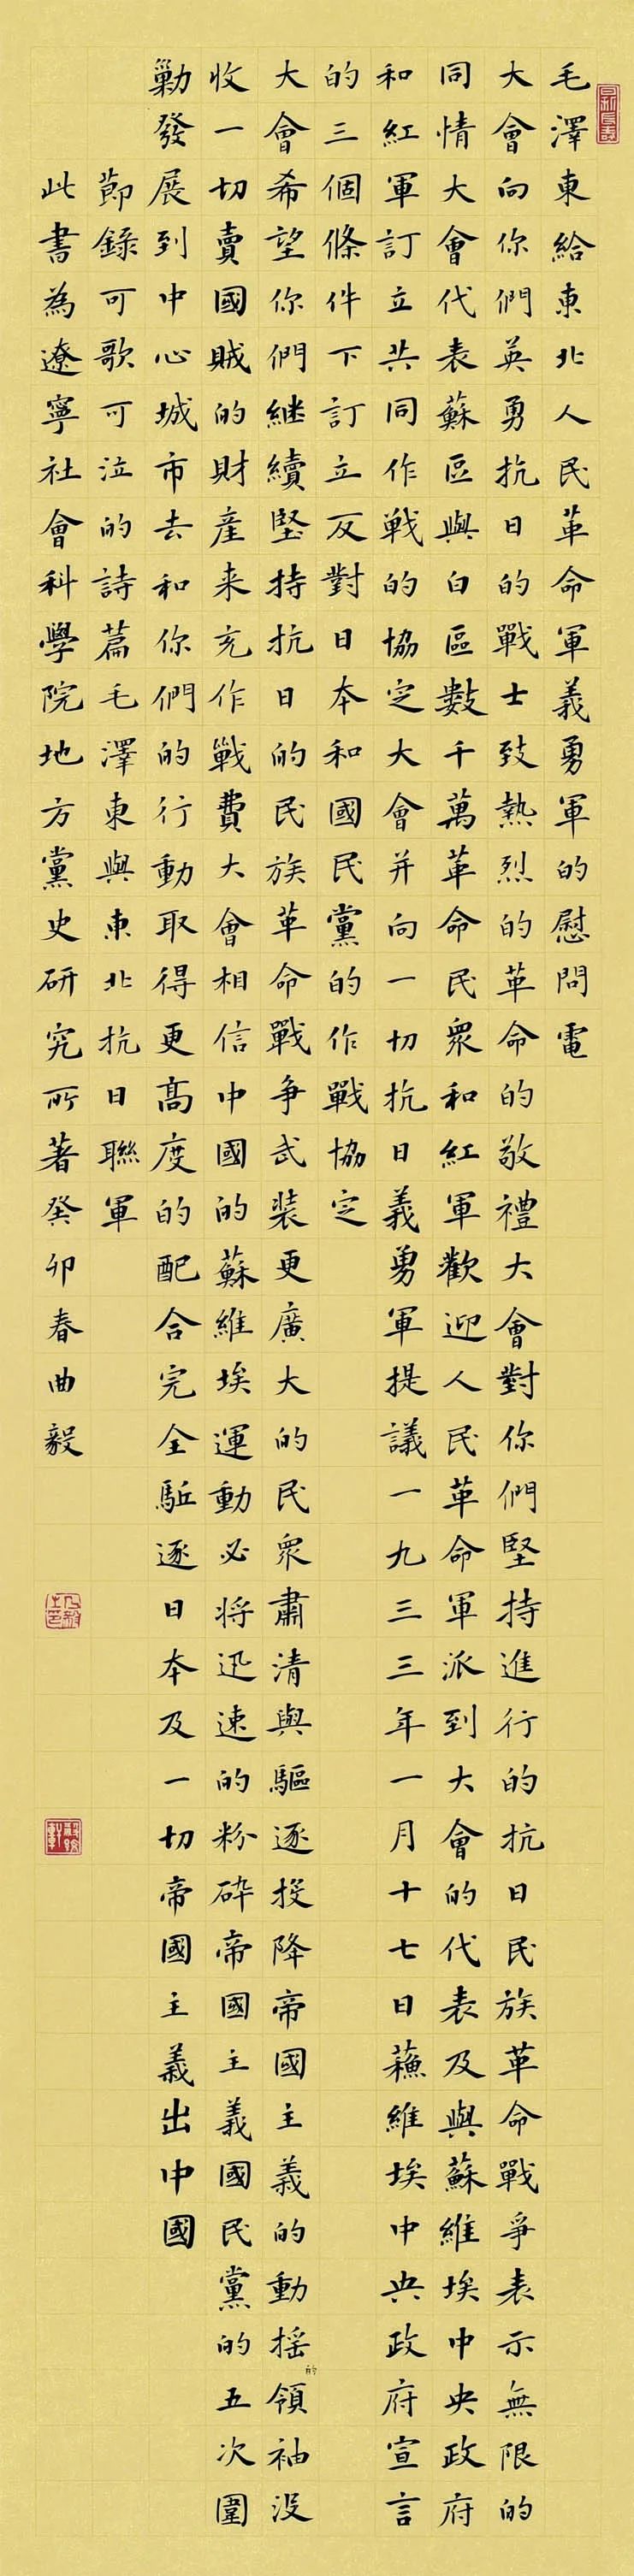 毛澤東給東北人民革命軍義勇軍的慰問電
大會向你們英勇抗日的戰士致熱烈的革命的敬禮大會對你們堅持進行的抗日民族革命戰爭表示無限的
同情大會代表蘇區與白區數千萬革命民眾和紅軍歡迎人民革命軍派到大會的代表及與蘇維埃中央政府
和紅軍訂立共同作戰的協定大會并向一切抗日義勇軍提議一九三三年一月十七日蘓維埃中央政府宣言
的三個條件下訂立反對日本和國民黨的作戰協定
大會希望你們継續堅持抗日的民族革命戰争武装更廣大的民眾肅清與驅逐投降帝國主義的動摇的領袖没
收一切賣國賊的財產来充作戰費大會相信中國的蘇維埃運動必将迅速的粉碎帝國主義國民黨的五次圍
勦發展到中心城市去和你們的行動取得更高度的配合完全駈逐日本及一切帝國主義出中國
節錄可歌可泣的詩篇毛澤東與東北抗日聯軍
此書為遼寧社會科學院地方黨史研究所著癸卯春曲毅